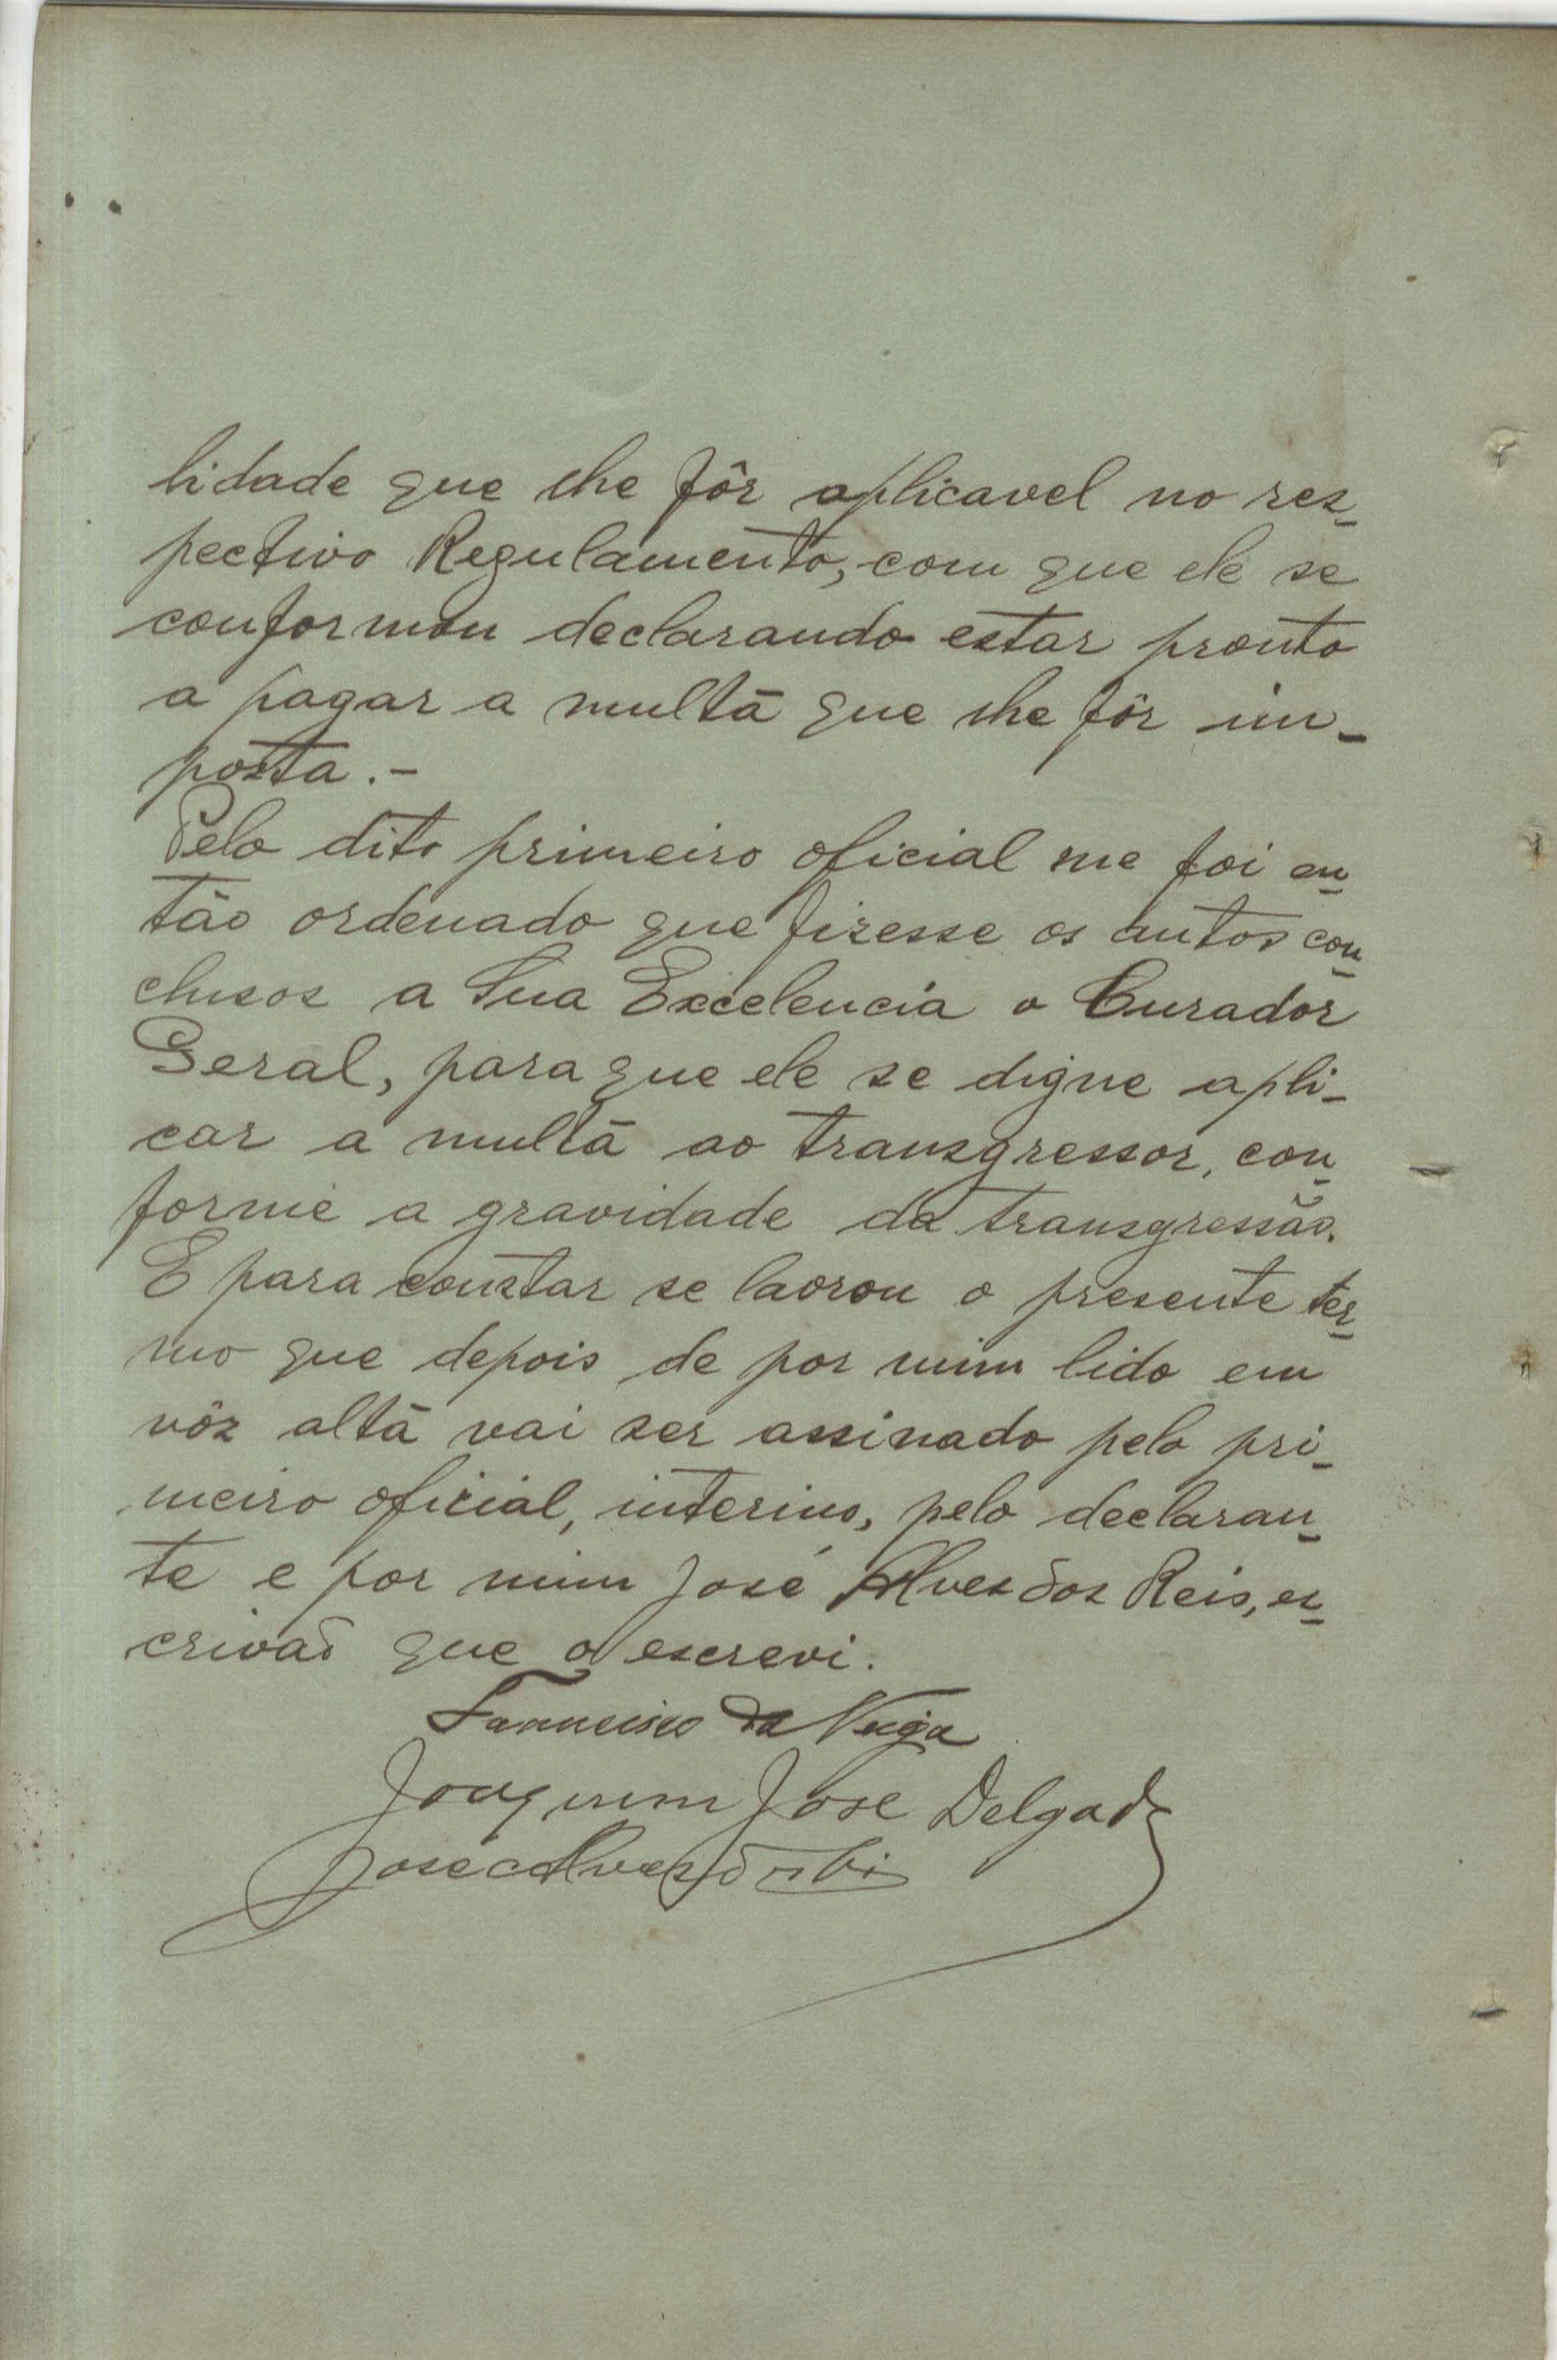 lidade que lhe fôr aplicavel no res-
pectivo Regulamento, com que ele se
conformou declarando estar pronto
a pagar a multa que lhe fôr im-
posta.-
Pelo dito primeiro oficial me foi en-
tão ordenado que fizesse os autos con-
clusos a Sua Excelencia o Curador
Geral, para que ele se digne apli-
car a multa ao transgressor, con-
forme a gravidade da transgressão.
E para constar se lavrou o presente ter-
mo que depois de por mim lido em
vôz alta vai ser assinado pelo pri-
meiro oficial, interino, pelo declaran-
te e por mim José Alves dos Reis, es-
crivão que o escrevi.
Francisco da Veiga
Joaquim Jose Delgado
Jose Alves dos Reis